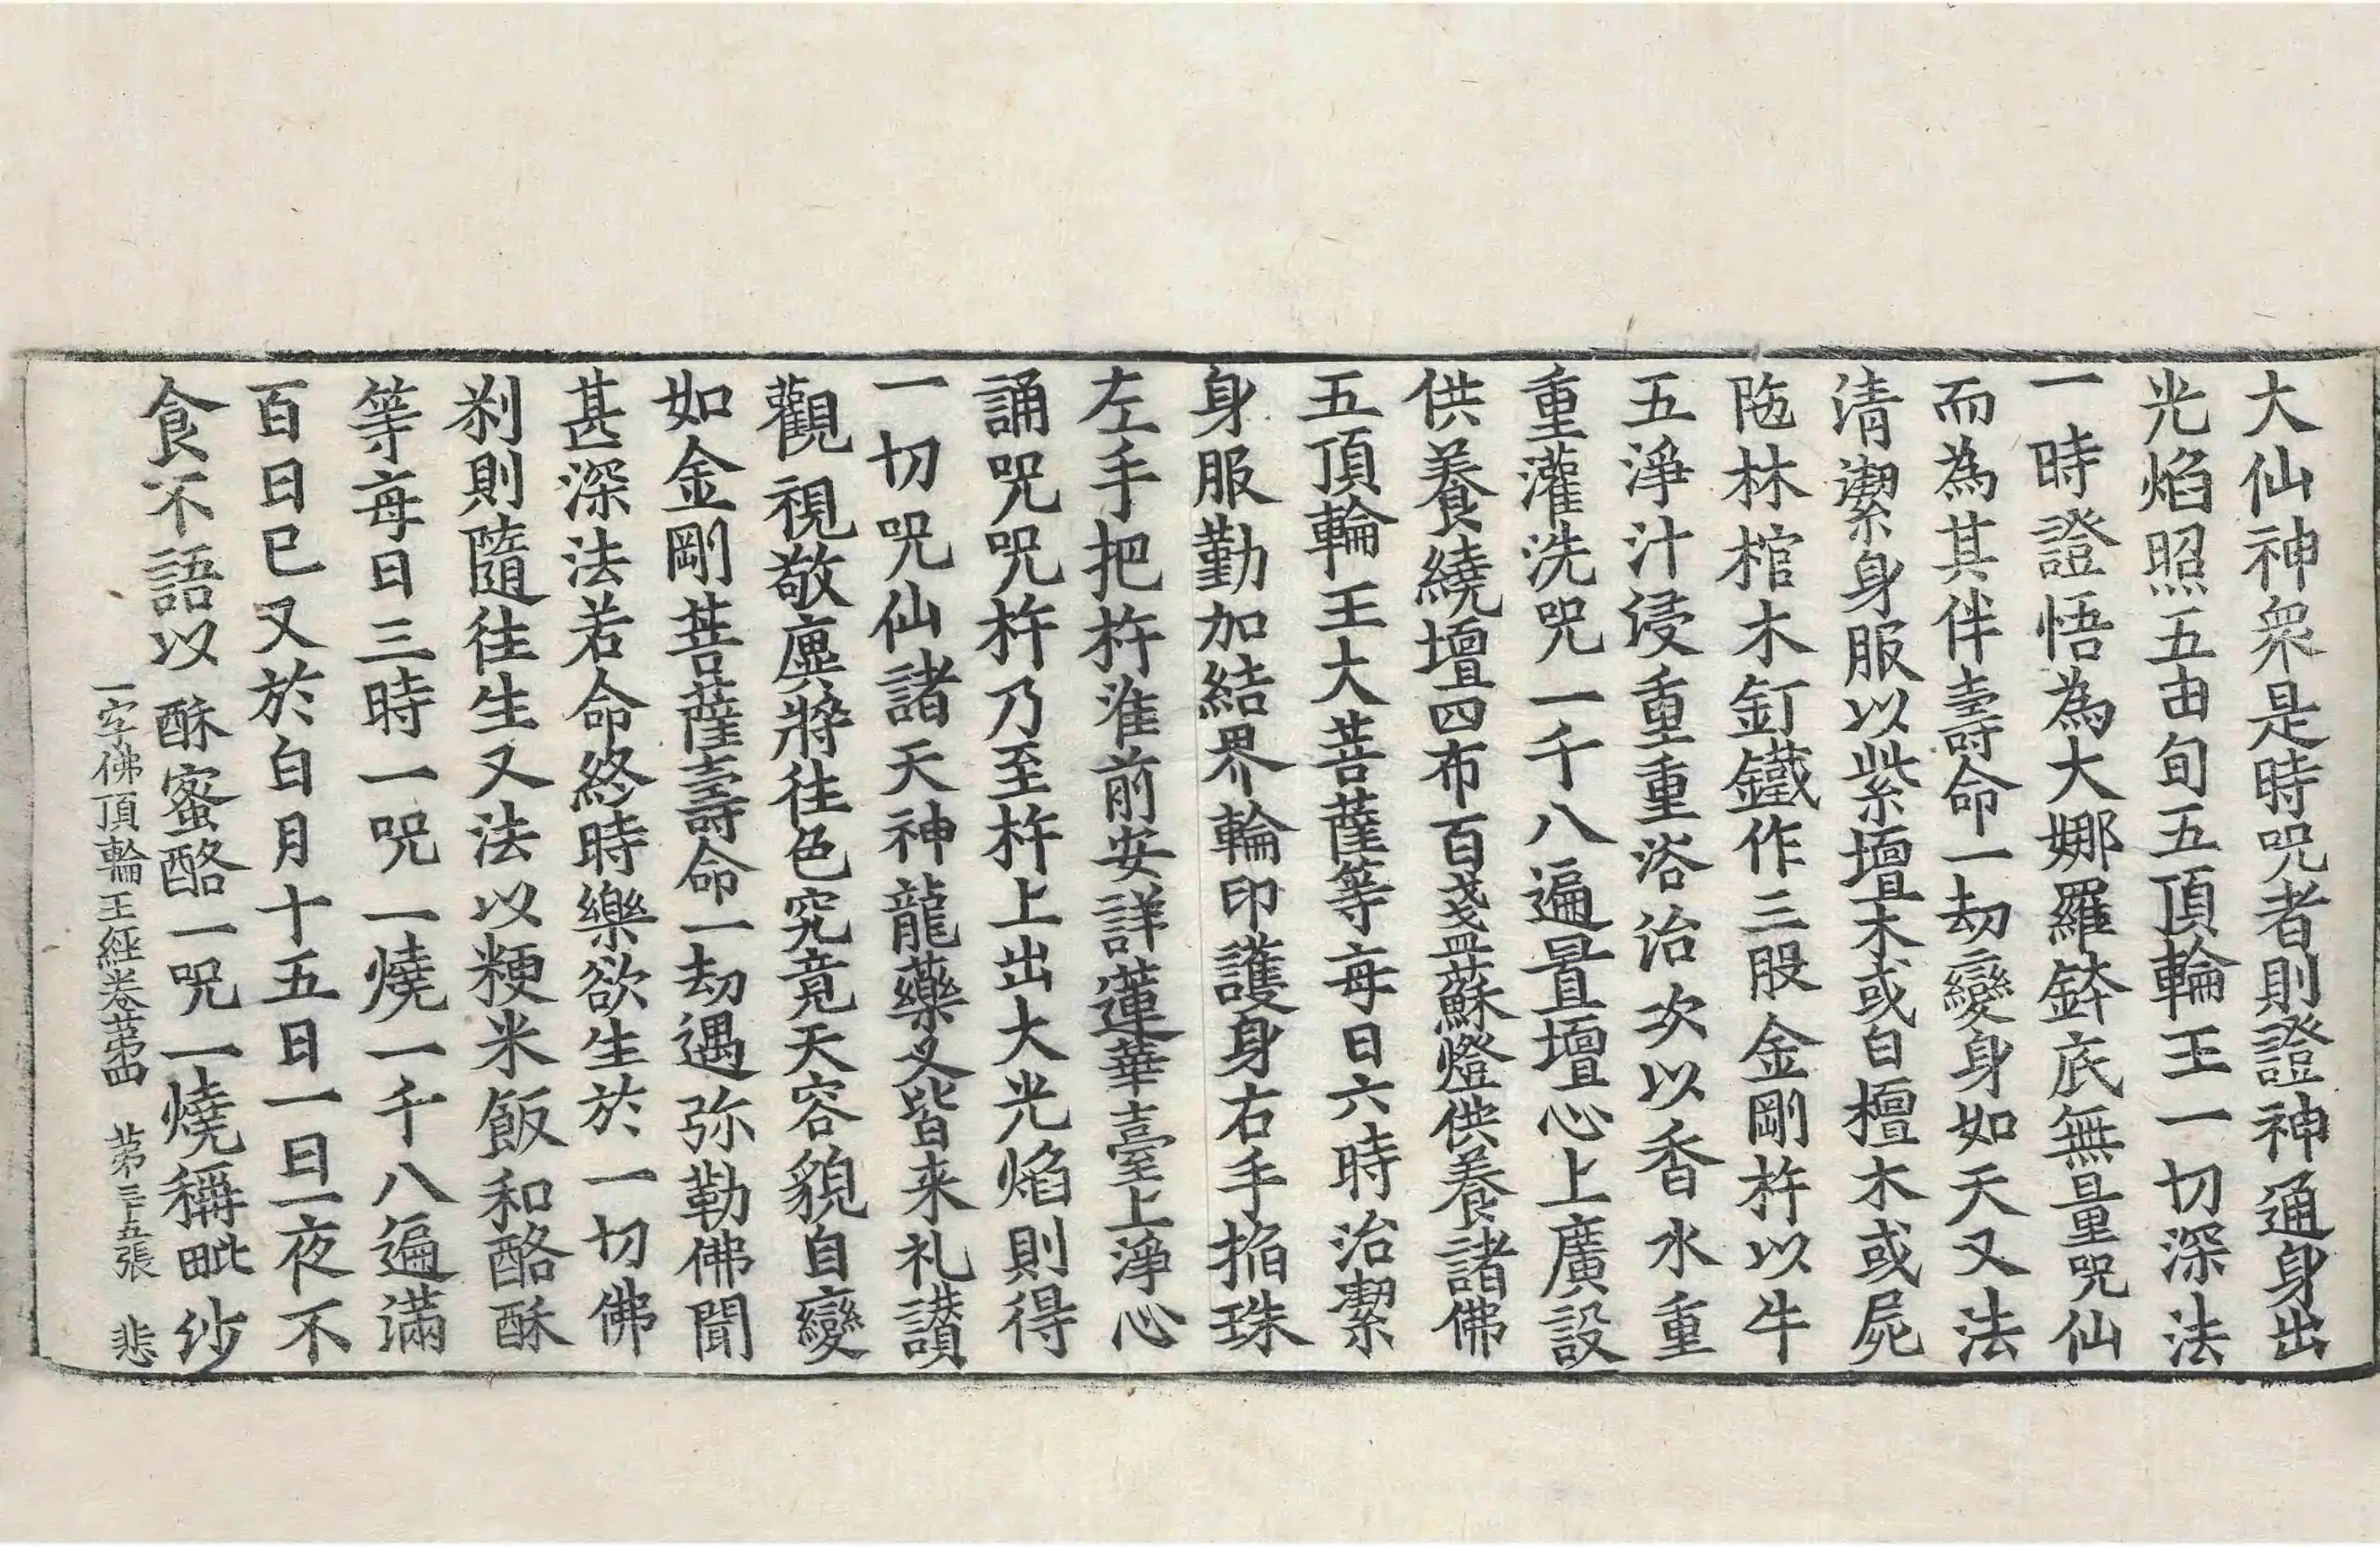 大仙神衆是時呪者則證神通身出
光焰照五由旬五頂輪王一切深法
一時證悟為大娜羅鉢底無量呪仙
而為其伴壽命一劫變身如天又法
清潔身服以紫壇木或白檀木或屍
陁林棺木釘鐵作三股金剛杵以牛
五淨汁浸重重浴治次以香水重
重灌洗呪一千八遍置壇心上廣設
供養繞壇四布百盞蘇燈供養諸佛
五頂輪王大菩薩等每日六時治潔
身服勤加結界輪印護身右手掐珠
左手把杵准前安詳蓮華臺上淨心
誦呪呪杵乃至杵上出大光焰則得
一切呪仙諸天神龍藥叉皆来礼讃
觀視敬㢝將往色究竟天容貌自變
如金剛菩薩壽命一劫遇弥勒佛聞
甚深法若命終時樂欲生於一切佛
刹則隨往生又法以粳米飯和酪酥
等每日三時一呪一燒一千八遍滿
百日已又於白月十五日一日一夜不
食不語以酥蜜酪一呪一燒稱毗紗
一字佛頂輪王經卷苐四 苐三十五張 悲